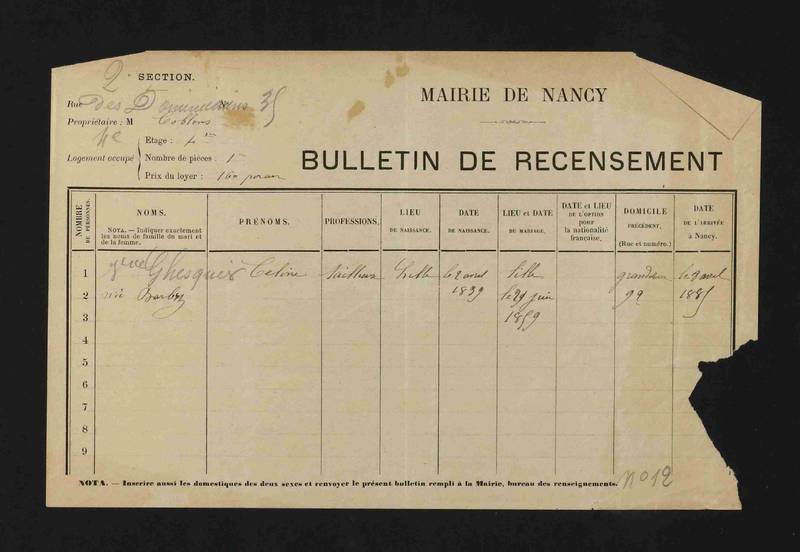 2 SECTION.
Rue des Dominicains 35
Propriétaire : M
MAIRIE DE NANCY
Logement occupé
Etage :
Nombre de pièces : 1
Prix du loyer : par an
BULLETIN DE RECENSEMENT
NOMBRE DE PERSONNES.
NOMS.
NOTA. — Indiquer exactement les noms de famille du mari et de la femme.
PRÉNOMS.
PROFESSIONS.
LIEU DE NAISSANCE.
DATE DE NAISSANCE.
LIEU et DATE DU MARIAGE.
DATE et LIEU DE L'OPTION pour la nationalité française.
DOMICILE PRÉCÉDENT. (Rue et numéro.)
DATE DE L'ARRIVÉE à Nancy.
1 Ghesquier Celine tailleuse Lille le 2 avril Lille le 9 avril
2 née Barbry 1839 le 29 juin 99 1885
3 1859
4
5
6
7
8
9
NOTA. — Inscrire aussi les domestiques des deux sexes et renvoyer le présent bulletin rempli à la Mairie, bureau des renseignements.
no 12